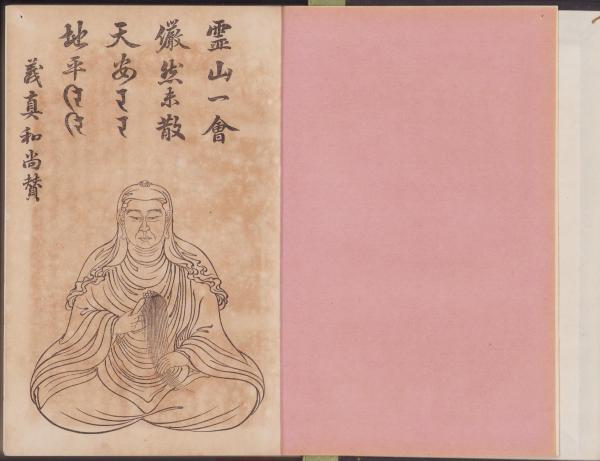 靈山一會
儼然未散
天安
地平
義真和尚賛